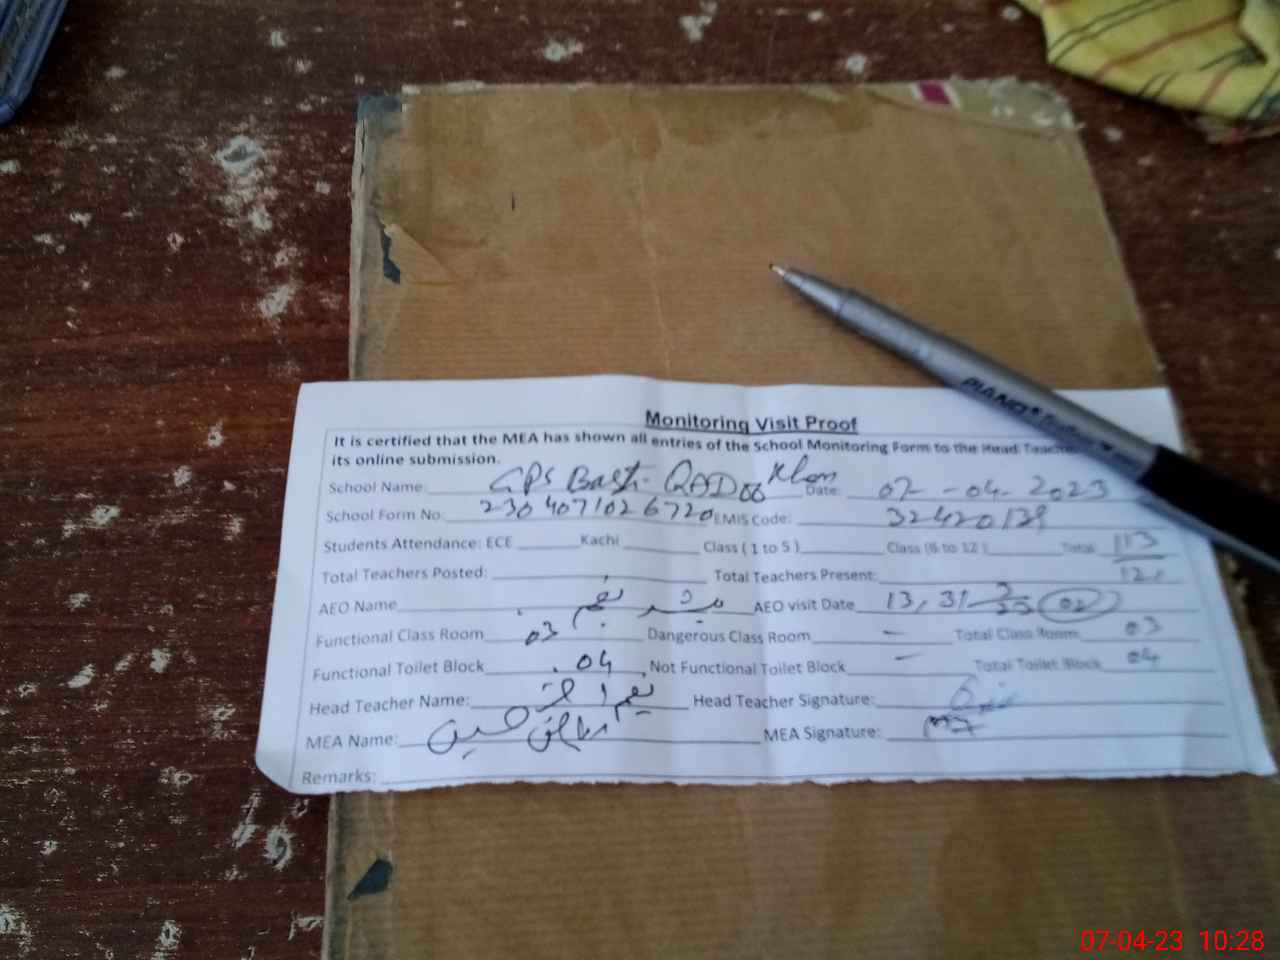 PIANO
Monitoring Visit Proof
It is certified that the MEA has shown all entries of the School Monitoring Form to the Head Teacher
its online submission.
School Name: GPS Basti QADOO Khan Date: 07-04-2023
School Form No: 2304071026720 EMIS Code: 32420129
Students Attendance: ECE Kachi Class (1 to 5) Class (6 to 12) Total 113
Total Teachers Posted: Total Teachers Present:
AEO Name AEO visit Date 13, 31 02
Functional Class Room 03 Dangerous Class Room - Total Class Room 03
Functional Toilet Block 04 Not Functional Toilet Block - Total Toilet Block 04
Head Teacher Name: Head Teacher Signature:
MEA Name: حسین MEA Signature:
Remarks:
07-04-23 10:28